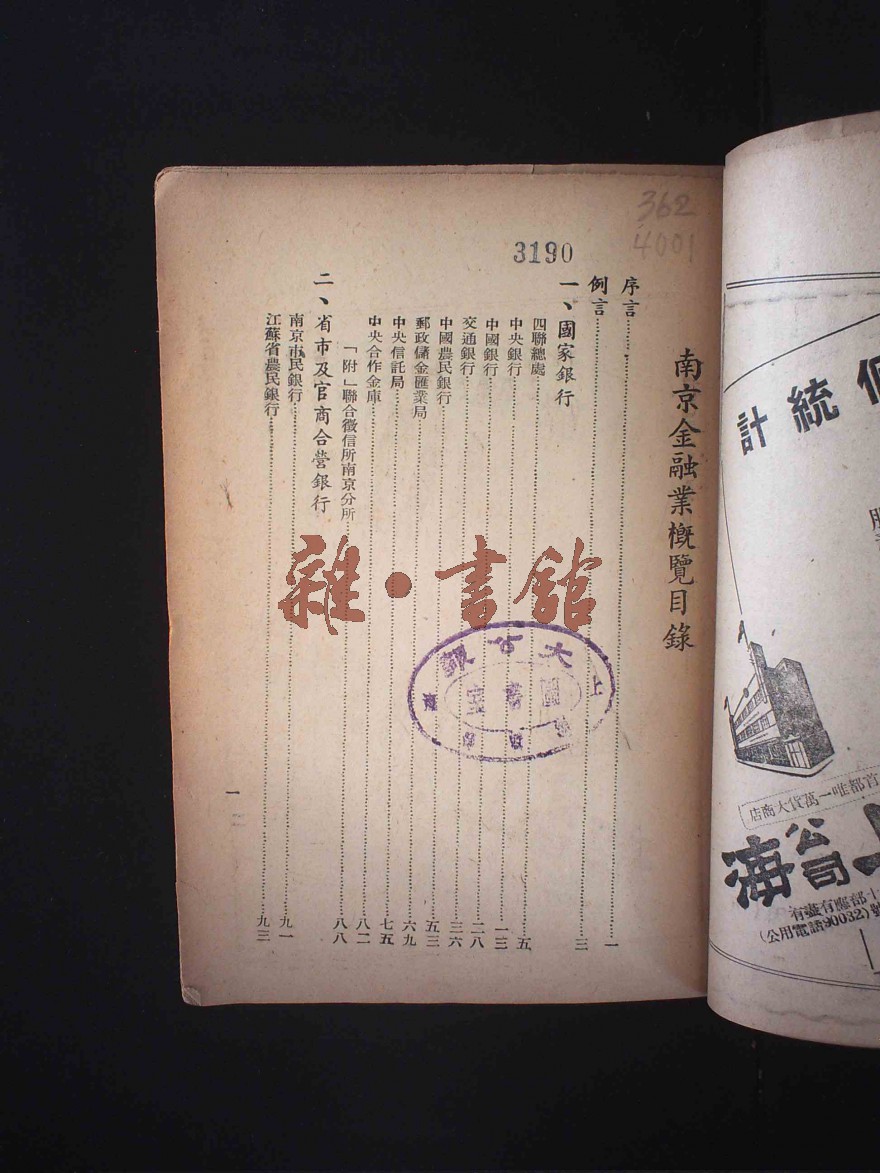 362
4001
3190
南京金融業概覽目錄
序言……一
例言……三
一、國家銀行
四聯總處……五
中央銀行……一三
中國銀行……二八
交通銀行……三六
中國農民銀行……五三
郵政儲金匯業局……六九
中央信託局……七五
中央合作金庫……八二
「附」聯合徵信所南京分所……八八
二、省市及官商合營銀行
南京市民銀行……九一
江蘇省農民銀行……九三
一
雜·書館
大公報
上海
圖書室
計統
首都唯一萬貨大商店
公司
海
(公用電話90032)